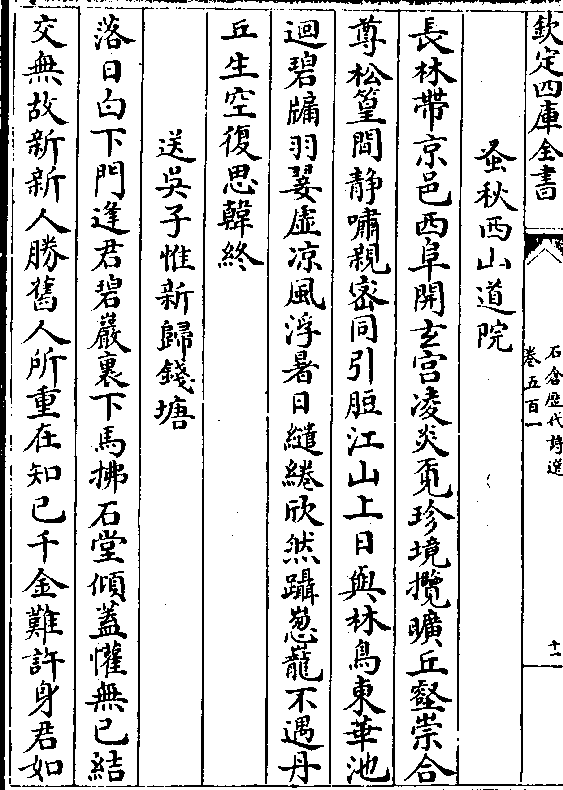 欽定四庫全書
石倉歷代詩選
卷五百一
十一
蚤秋西山道院
長林帶京邑西阜開玄宮凌炎覔珍境攬曠丘壑崇合
尊松篁間静嘯親宻同引脰江山上日與林鳥東華池
迴碧牖羽翣虚凉風浮暑日繾綣欣然躡葱蘢不遇丹
丘生空復思韓終
送吳子惟新歸錢塘
落日白下門逢君碧巖裏下馬拂石堂傾盖懽無已結
交無故新新人勝舊人所重在知已千金難許身君如